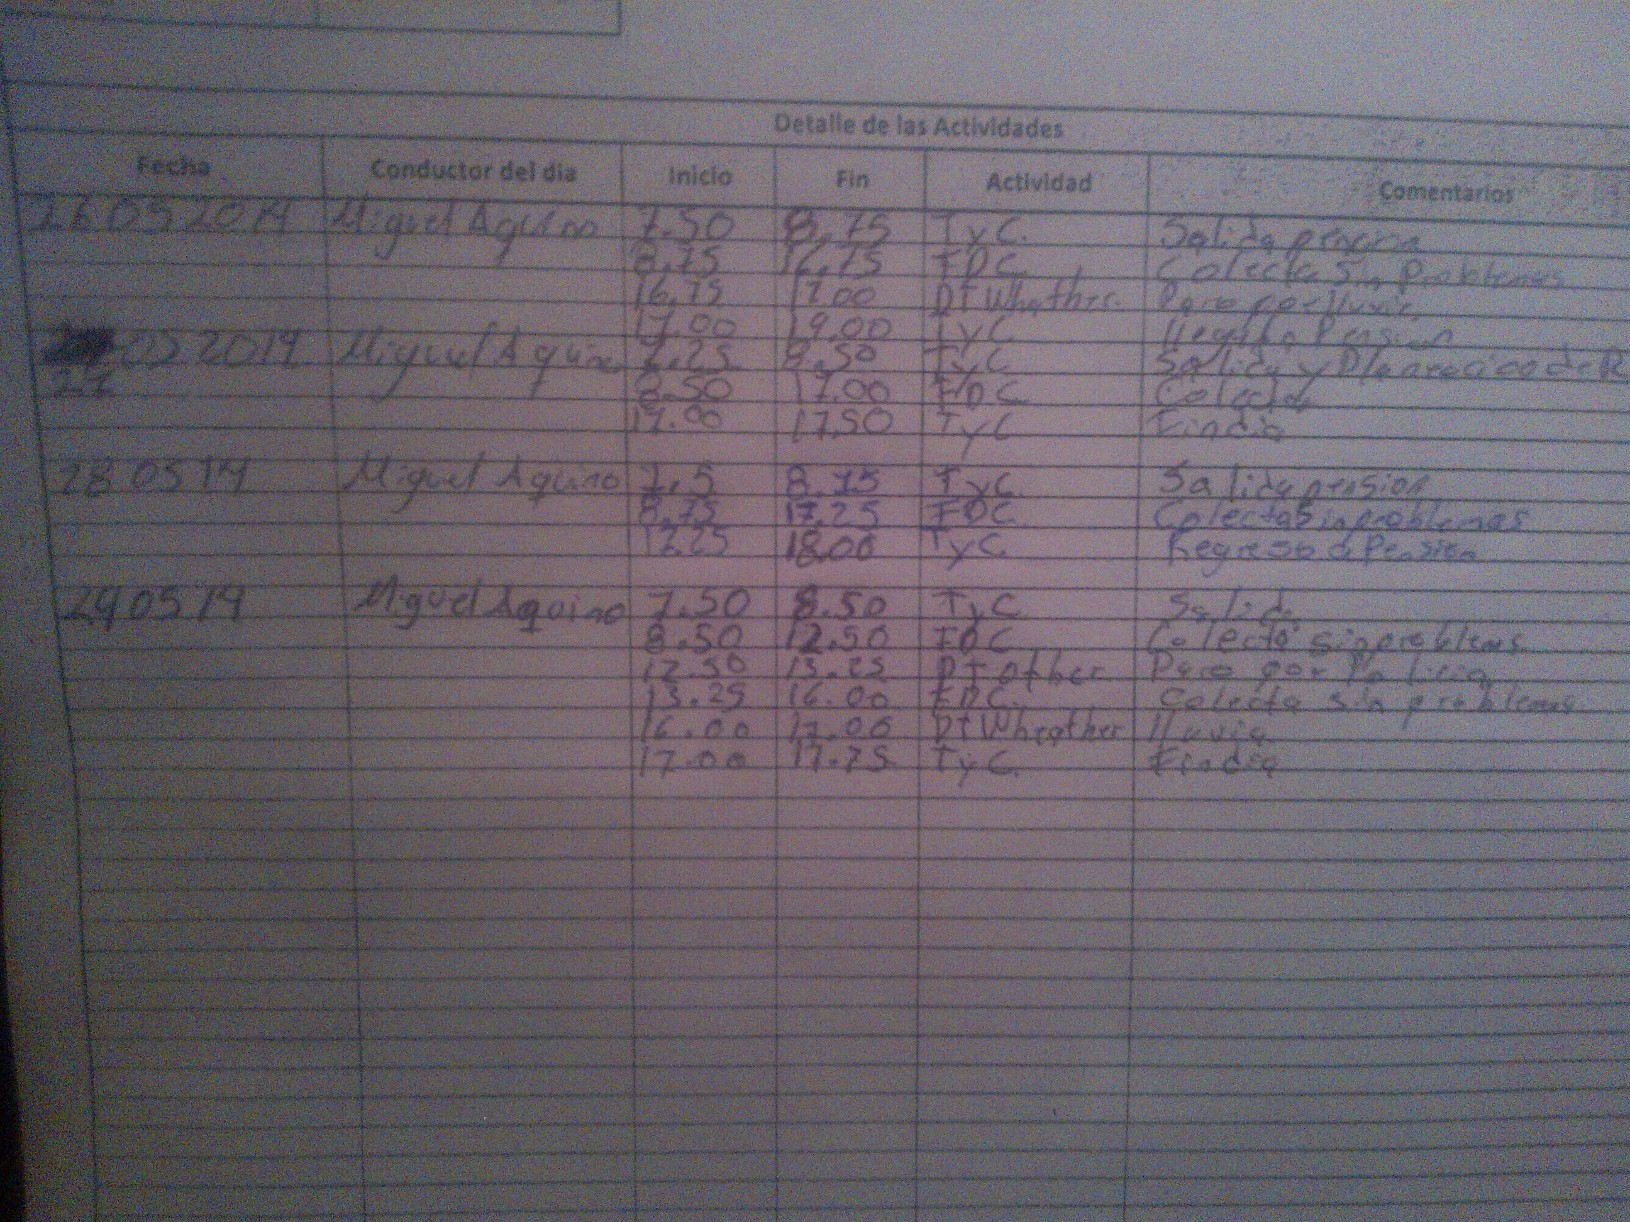 Detalle de las Actividades
Fecha Conductor del dia Inicio Fin Actividad Comentarios
26 05 2014 Miguel Aquino 7.50 8.75 TyC. Salida
8.75 16.75 FDC Colecta Sin Problemas
16.75 17.00 DT Wheather. Paro por lluvia
17.00 19.00 TyC llegada Pension
05 2014 Miguel Aquino 7.25 8.50 TyC Salida y
27 8.50 17.00 FDC Colecta
17.00 17.50 TyC Findia
28 05 14 Miguel Aquino 7.5 8.75 TyC. Salida pension
8.75 17.25 FDC Colecta Sin problemas
17.25 18.00 TyC. Regreso a Pension
29 05 14 Miguel Aquino 7.50 8.50 TyC. Salida
8.50 12.50 FDC Colecta sin problems
12.50 13.25 DT other Paro por Policia
13.25 16.00 FDC. Colecta sin problemas
16.00 17.00 DT Wheather lluvia
17.00 17.75 TyC. Findia